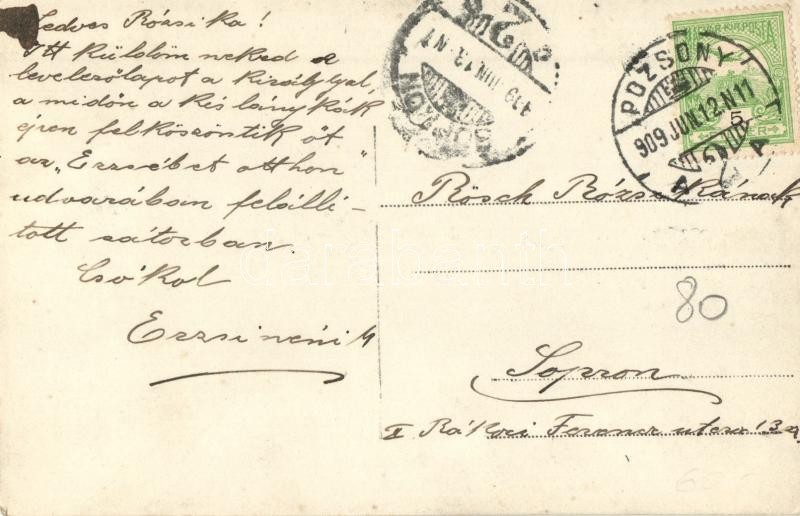 Kedves Rózsika!
Itt küldöm neked a
levelezőlapot a királylyal,
a midőn a kis lánykák
épen felköszöntik őt
az „Erzsébet otthon"
udvarában felálli-
tott sátorban.
Csókol
Erzsi néni
POZSONY
909 JUN. 12. N 11
5
909 JUN. 13. N
Rösch Rózsikának
80
Sopron
I Rákoci Ferenc utca 13
darabanth